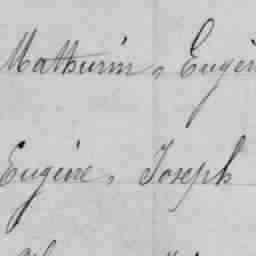 Mathurin, Eugèn
Eugène, Joseph